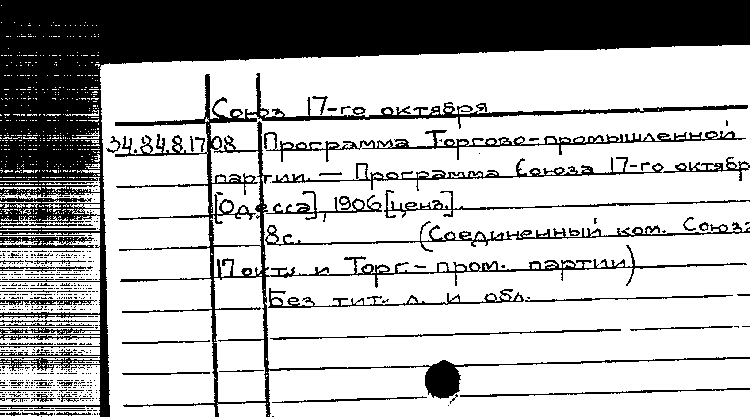 Союз 17-го октября
34.84.8.17 08 Программа Торгово-промышленной
партии. — Программа Союза 17-го октябр
[Одесса], 1906 [ценз].
8с. (Соединенный ком. Союза
17 окт. и Торг.-пром. партии)
Без тит. л. и обл.